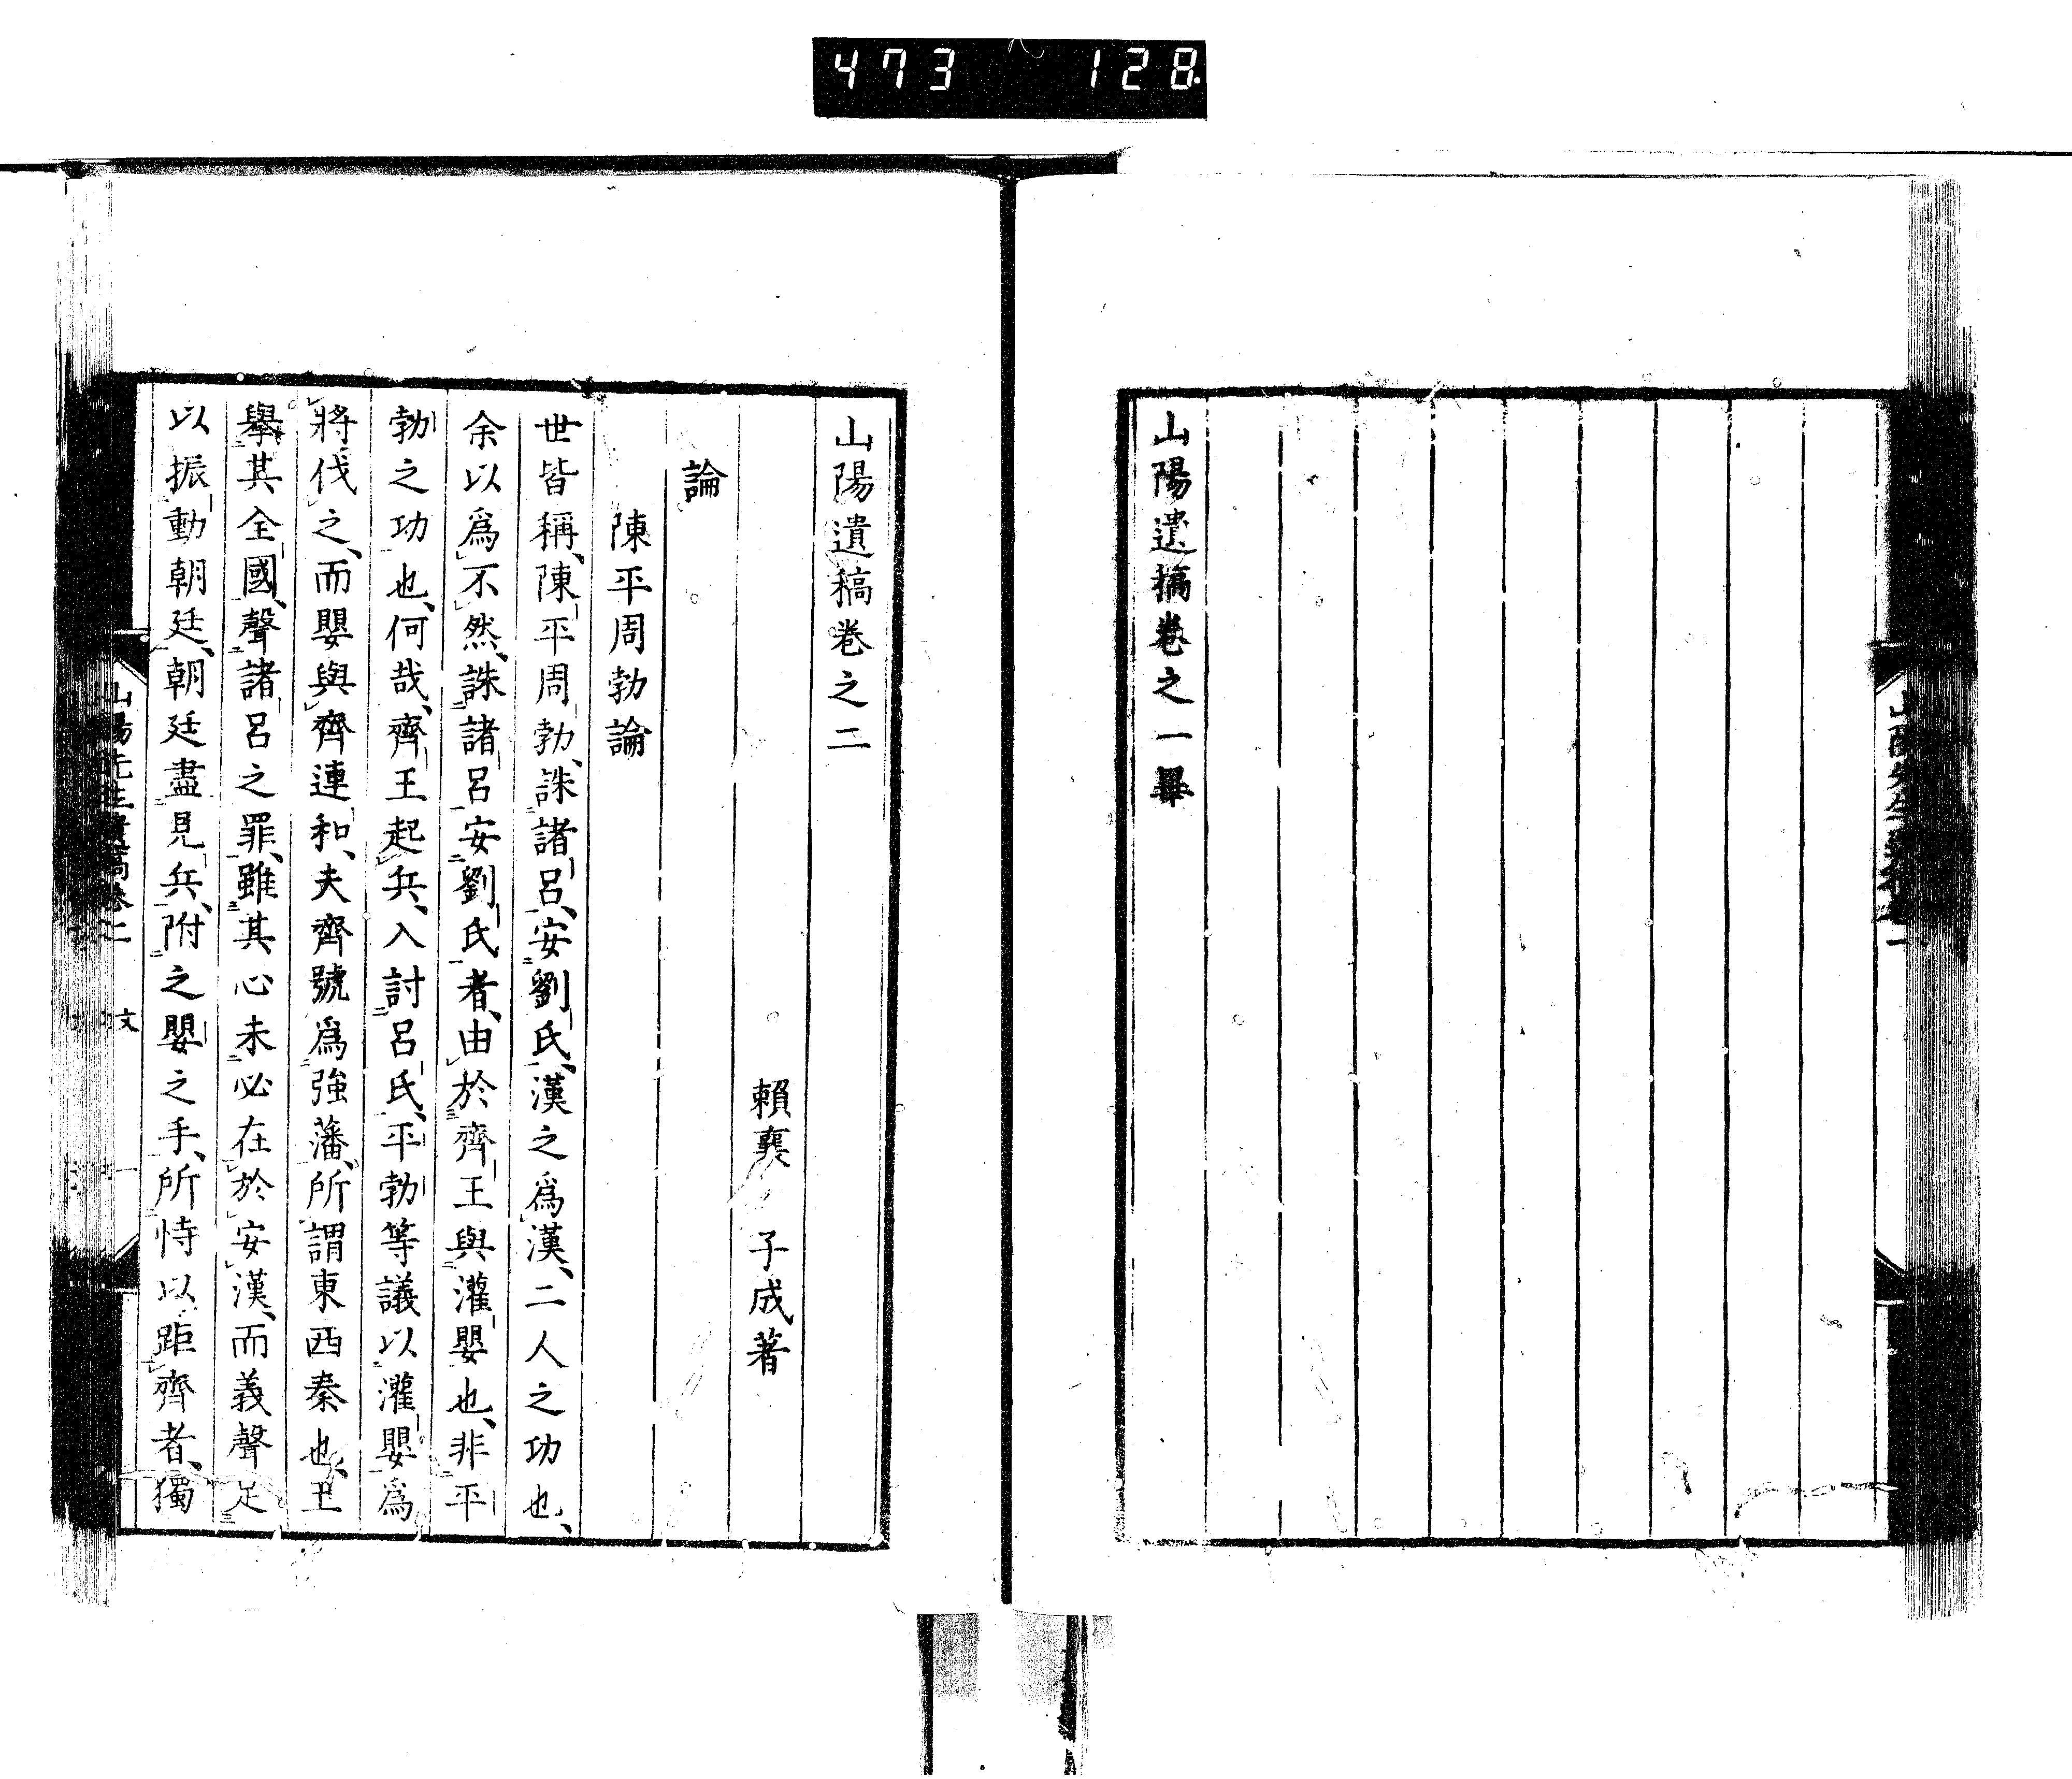 473 128
山陽遺稿卷之一畢
山陽遺稿卷之二
賴襄 子成著
論
陳平周勃論
世皆稱、陳平周勃、誅諸呂、安劉氏、漢之爲漢、二人之功也、
余以爲不然、誅諸呂安劉氏者、由於齊王與灌嬰也、非平
勃之功也、何哉、齊王起兵、入討呂氏、平勃等議以灌嬰爲
將伐之、而嬰與齊連和、夫齊號爲強藩、所謂東西秦也、王
舉其全國、聲諸呂之罪、雖其心未必在於安漢、而義聲足
以振動朝廷、朝廷盡見兵、附之嬰之手、所恃以距齊者、獨
山陽先生遺稿卷二 文